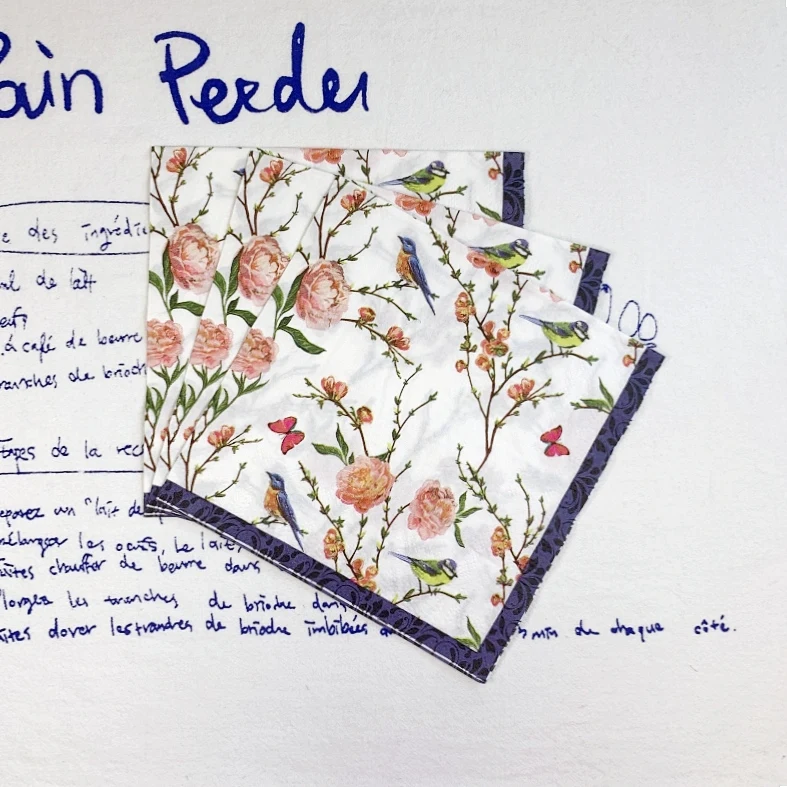 Pain Perdu
e des ingrédie
ml de lait
œufs
à café de beurre
ranches de brioch
tapes de la rec
éparez un "lait de p
mélanger les œufs, le lait,
aites chauffer de beurre dans
longez les tranches de brioche dans
aites dorer les tranches de brioche imbibées min de chaque côté.